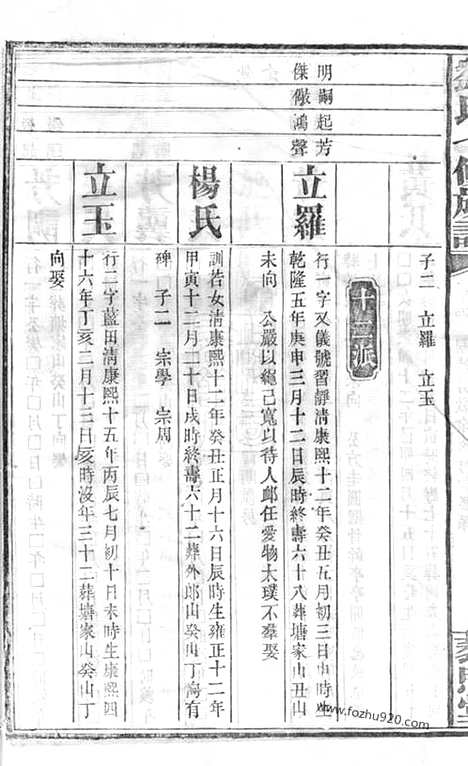 子二　立羅　立玉
十三派
明嗣起芳
傑儆鴻聲
立羅
行一字又儀號習靜清康熙十二年癸丑五月初三日申時生
乾隆五年庚申三月十二日辰時終壽六十八葬塘家山丑山
未向　公嚴以繩己寬以待人邮任愛物太璞不羣娶
楊氏
訓若女清康熙十二年癸丑正月十六日辰時生雍正十二年
甲寅十二月二十日戌時終壽六十二葬外郎山癸山丁向有
碑　子二　宗學　宗周
立玉
行二字藍田清康熙十五年丙辰七月初十日未時生康熙四
十六年丁亥二月十三日亥時沒年三十二葬塘家山癸山丁
向娶
www.fozhu920.com